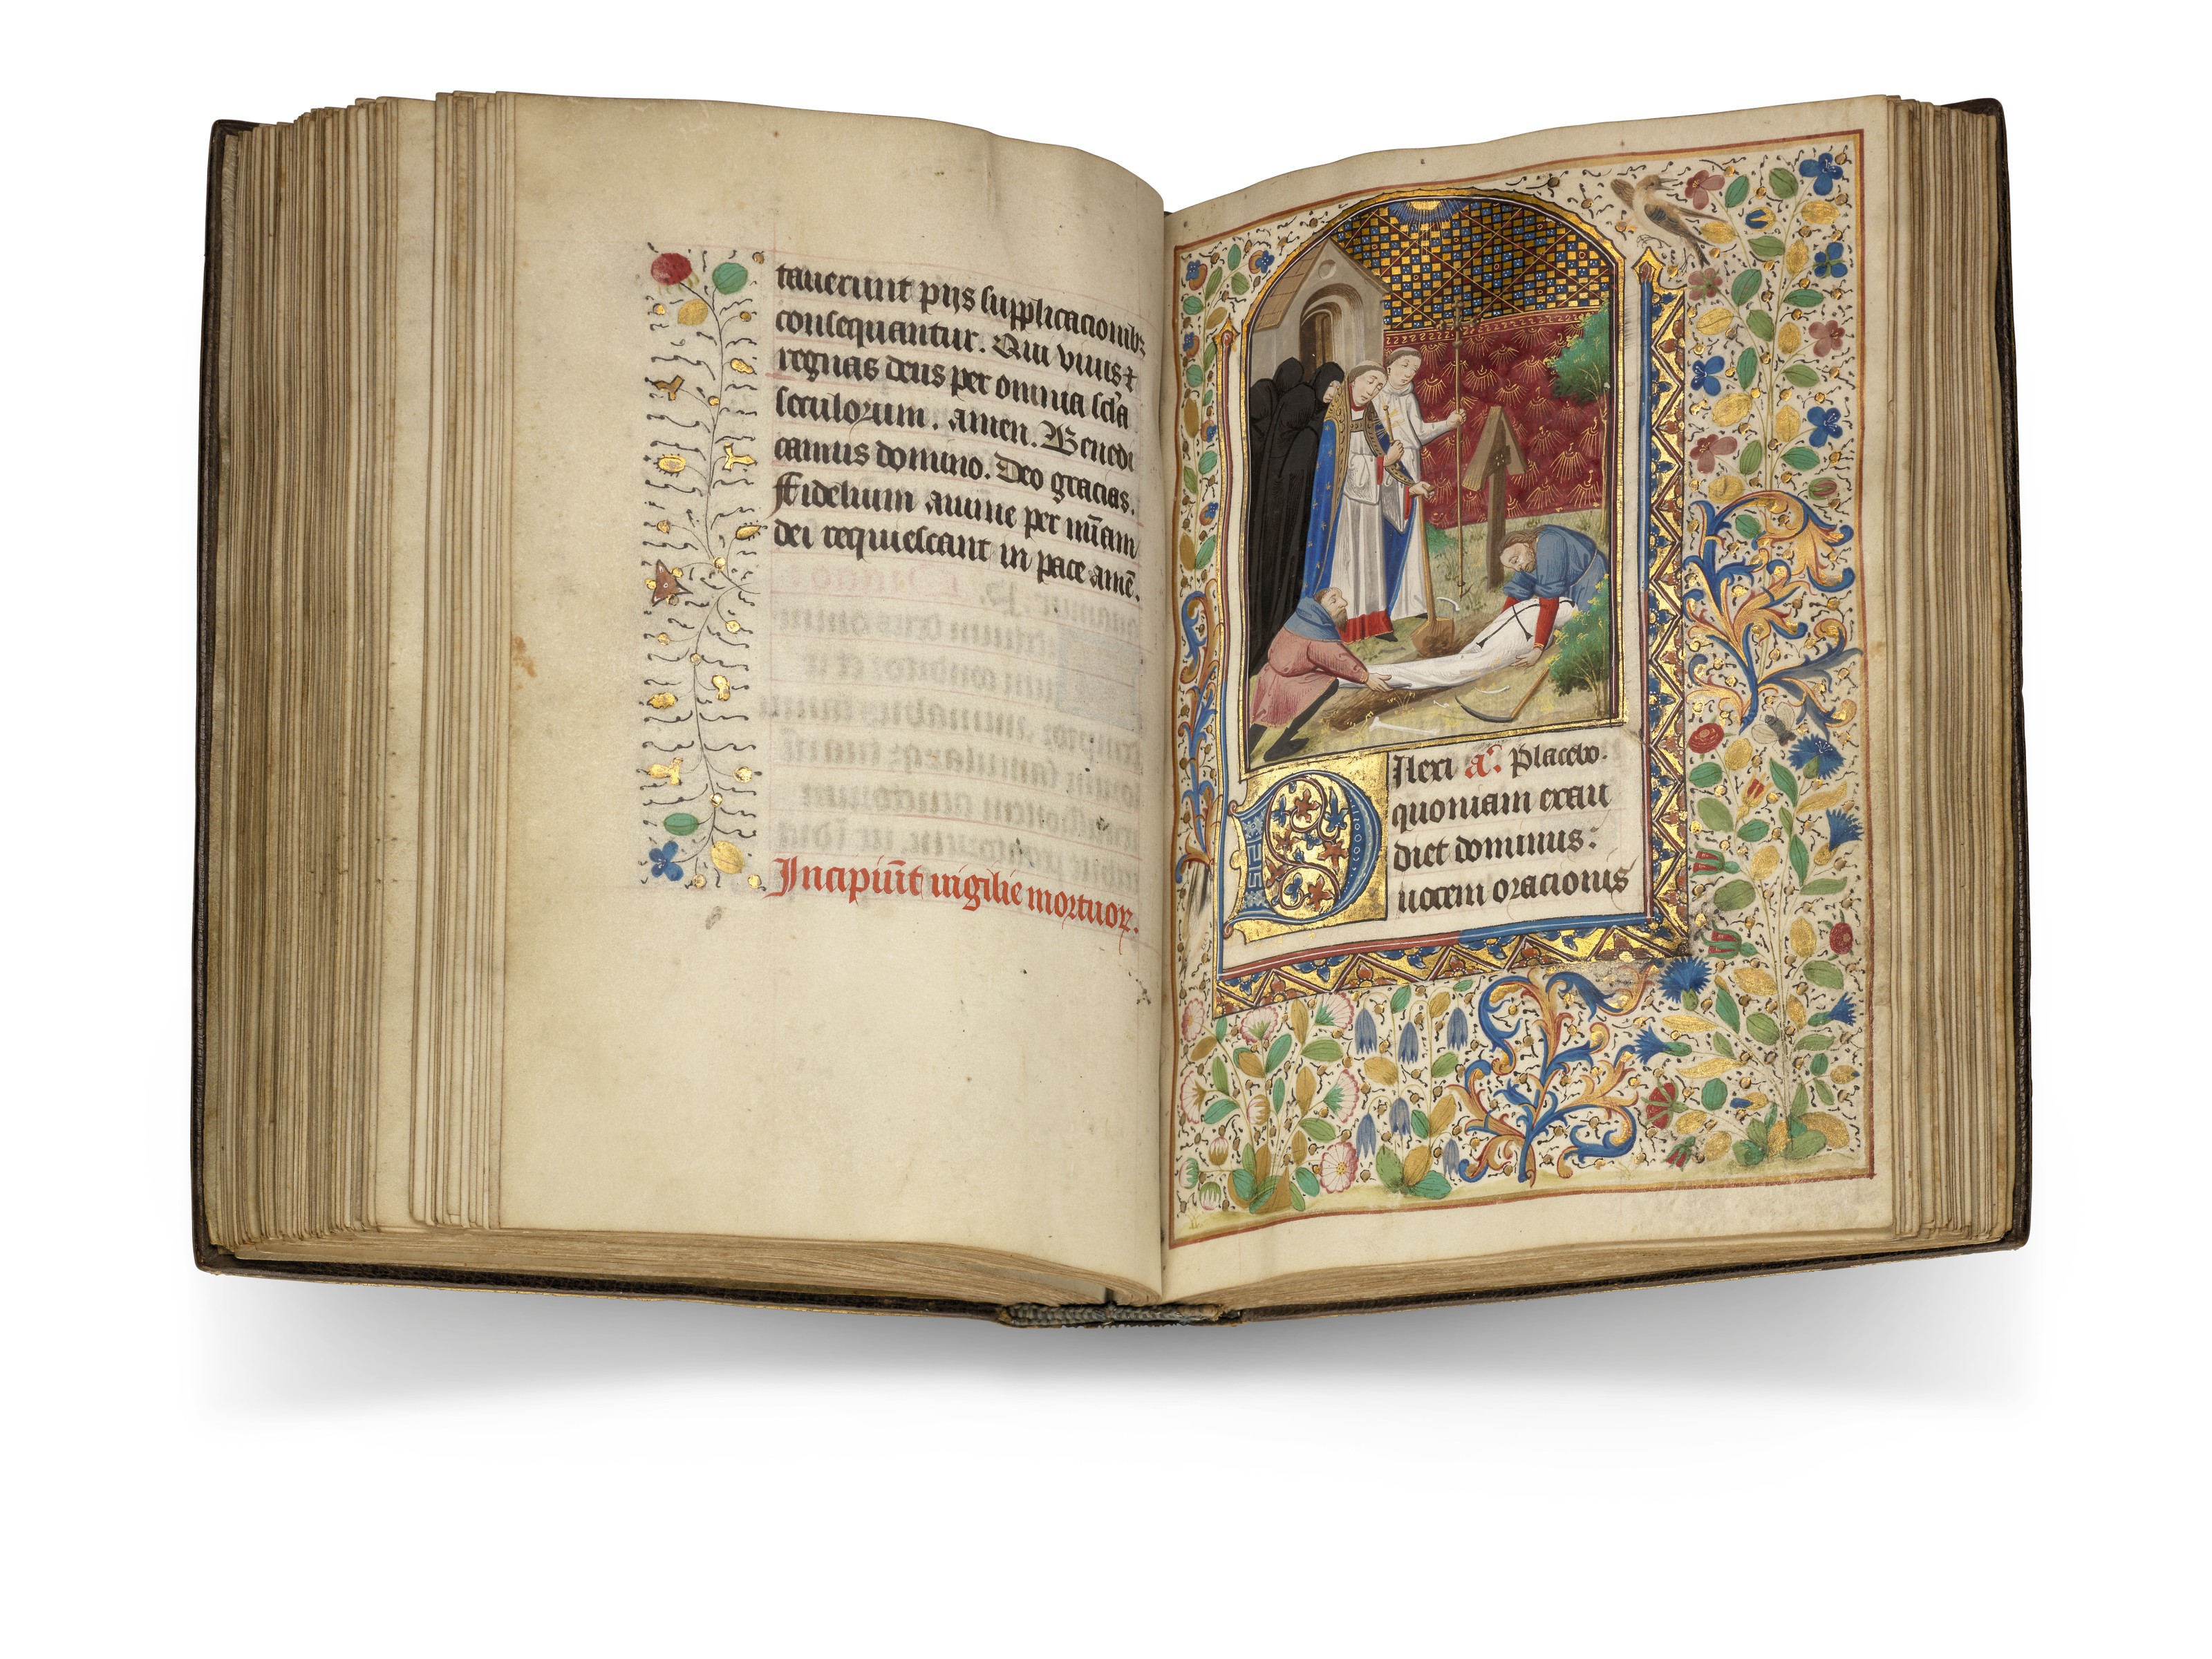 tauerunt pijs supplicacionibꝫ
consequantur. Qui viuis ⁊
regnas deus per omnia scl'a
seculorum. amen. Benedi
camus domino. Deo gracias.
Fidelium anime per mīam
dei requiescant in pace amē.
Incipiūt vigilie mortuoꝝ.
Dilexi a᷑. Placebo.
quoniam exau
diet dominus:
uocem oracionis